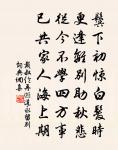 鬓下初惊白发时
更逢离别助秋悲
从今不学四方事
已共家人海上期
戴叔伦再游道永留别
词典网奉